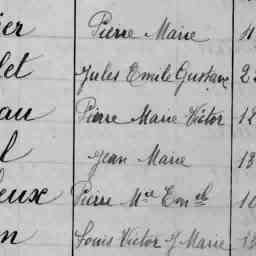 ier Pierre Marie 4
let Jules Emile Gustave 2
au Pierre Marie Victor 12
l Jean Marie 13
eux Pierre Mie Em el 10
n Louis Victor J Marie 13